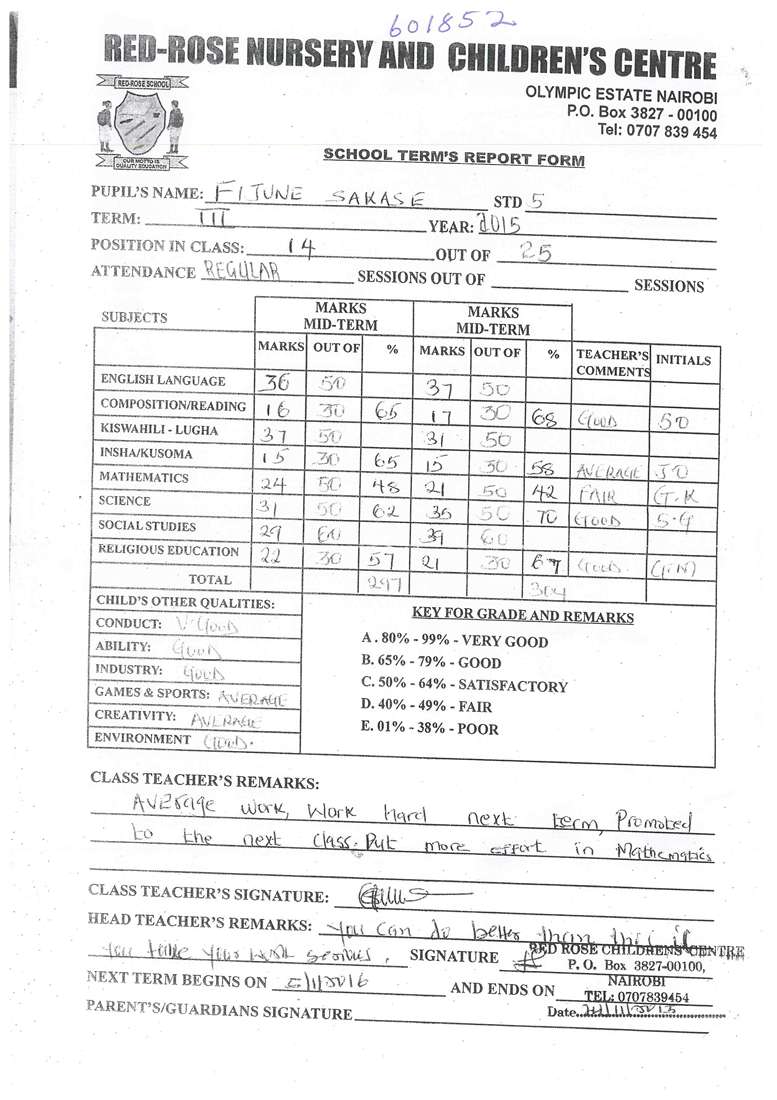 601852
RED-ROSE NURSERY AND CHILDREN'S CENTRE
RED-ROSE SCHOOL
OUR MOTTO IS
QUALITY EDUCATION
OLYMPIC ESTATE NAIROBI
P.O. Box 3827 - 00100
Tel: 0707 839 454
SCHOOL TERM'S REPORT FORM
PUPIL'S NAME: FITUNE SAKASE STD 5
TERM: III YEAR: 2015
POSITION IN CLASS: 14 OUT OF 25
ATTENDANCE REGULAR SESSIONS OUT OF SESSIONS
SUBJECTS MARKS MID-TERM MARKS MID-TERM
MARKS OUT OF % MARKS OUT OF % TEACHER'S COMMENTS INITIALS
ENGLISH LANGUAGE 36 50 37 50
COMPOSITION/READING 16 30 65 17 30 68 GOOD
KISWAHILI - LUGHA 37 50 31 50
INSHA/KUSOMA 15 30 65 15 30 58 AVERAGE
MATHEMATICS 24 50 48 21 50 42 FAIR G.K
SCIENCE 31 50 62 35 50 70 GOOD
SOCIAL STUDIES 29 60 39 60
RELIGIOUS EDUCATION 22 30 57 21 30 67 GOOD.
TOTAL 297 304
CHILD'S OTHER QUALITIES:
CONDUCT: V. GOOD
ABILITY: GOOD
INDUSTRY: GOOD
GAMES & SPORTS: AVERAGE
CREATIVITY: AVERAGE
ENVIRONMENT GOOD.
KEY FOR GRADE AND REMARKS
A. 80% - 99% - VERY GOOD
B. 65% - 79% - GOOD
C. 50% - 64% - SATISFACTORY
D. 40% - 49% - FAIR
E. 01% - 38% - POOR
CLASS TEACHER'S REMARKS:
AVErage work, Work hard next term, Promoted
to the next class. Put more effort in Mathematics
CLASS TEACHER'S SIGNATURE:
HEAD TEACHER'S REMARKS: You can do better than this if
you take your work serious. SIGNATURE
RED ROSE CHILDRENS CENTRE
P. O. Box 3827-00100,
NAIROBI
TEL: 0707839454
Date
NEXT TERM BEGINS ON 5/1/2016 AND ENDS ON
PARENT'S/GUARDIANS SIGNATURE